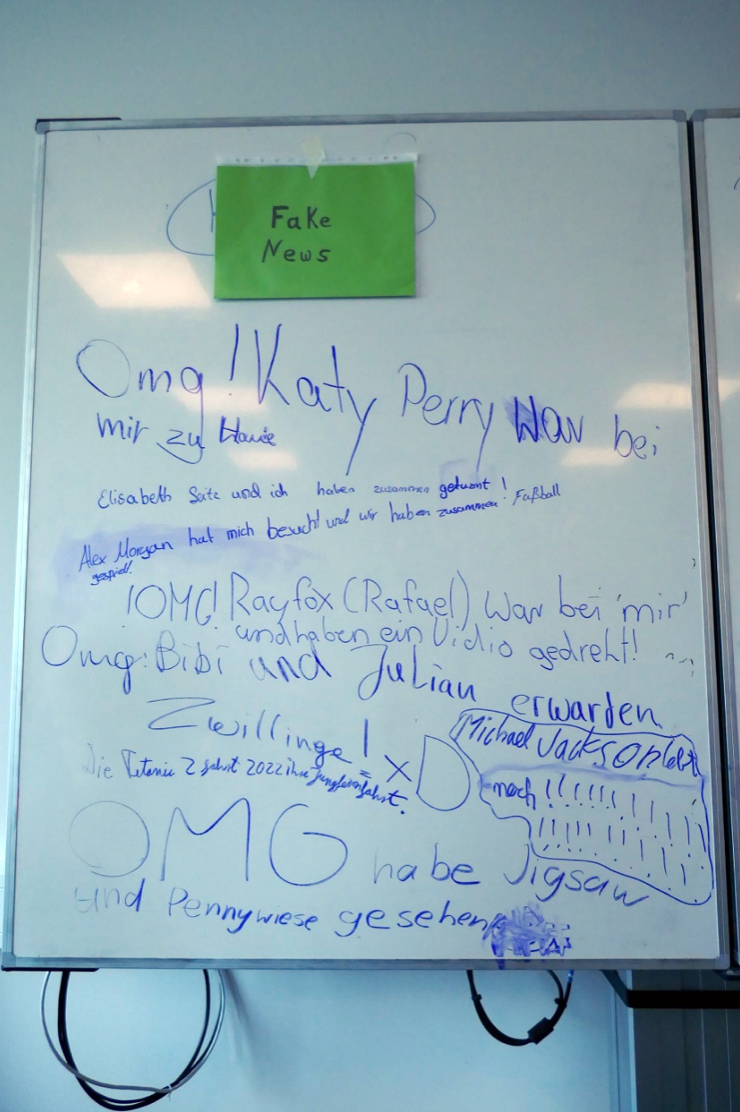 Fake
News
Omg! Katy Perry War bei
mir zu Hause
Elisabeth Seitz und ich haben zusammen geturnt!
Alex Morgan hat mich besucht und wir haben zusammen Fußball
gespielt!
!OMG! Rayfox (Rafael) war bei 'mir'
und haben ein Vidio gedreht!
Omg: Bibi und Julian erwarten
Zwillinge! xD
Michael Jackson lebt
noch!!!!!!!!!!!!!!!!!!!!!!!!
Die Titanic 2 fährt 2022 ihre Jungfernfahrt.
OMG habe Jigsaw
und Pennywiese gesehen